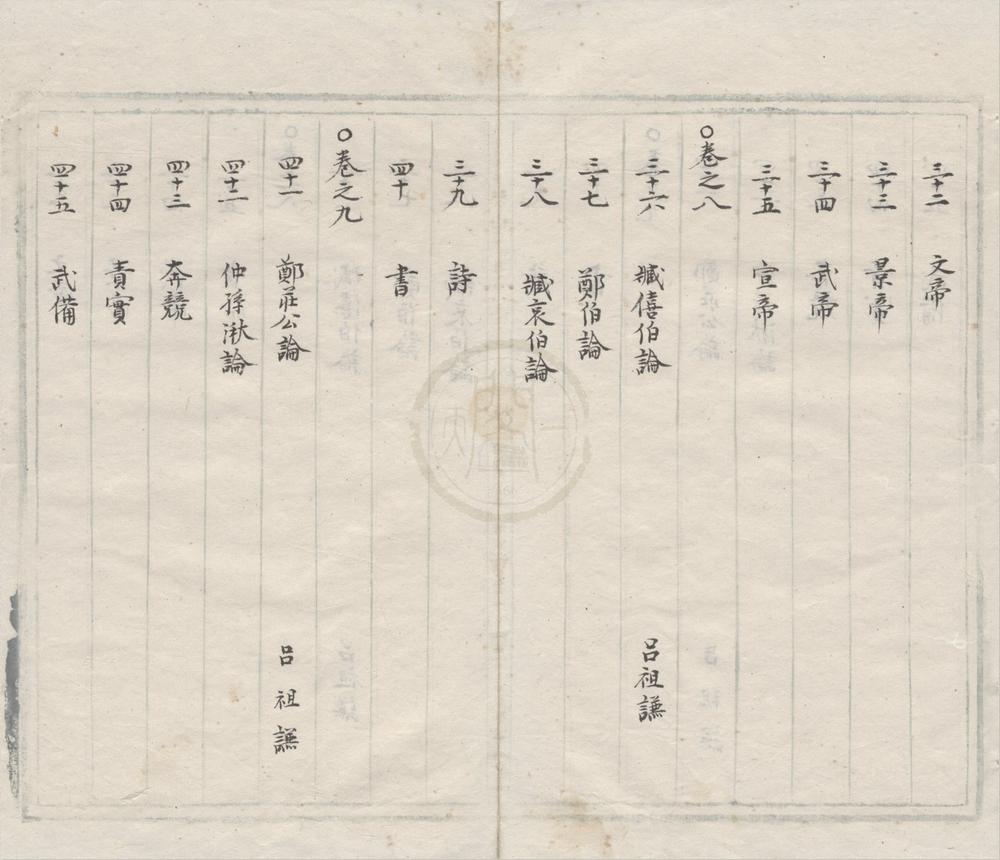 三十二 文帝
三十三 景帝
三十四 武帝
三十五 宣帝
○卷之八
三十六 臧僖伯論 呂祖謙
三十七 鄭伯論
三十八 臧哀伯論
三十九 詩
四十 書
○卷之九
四十一 鄭莊公論 呂祖謙
四十二 仲孫湫論
四十三 奔競
四十四 責實
四十五 武備